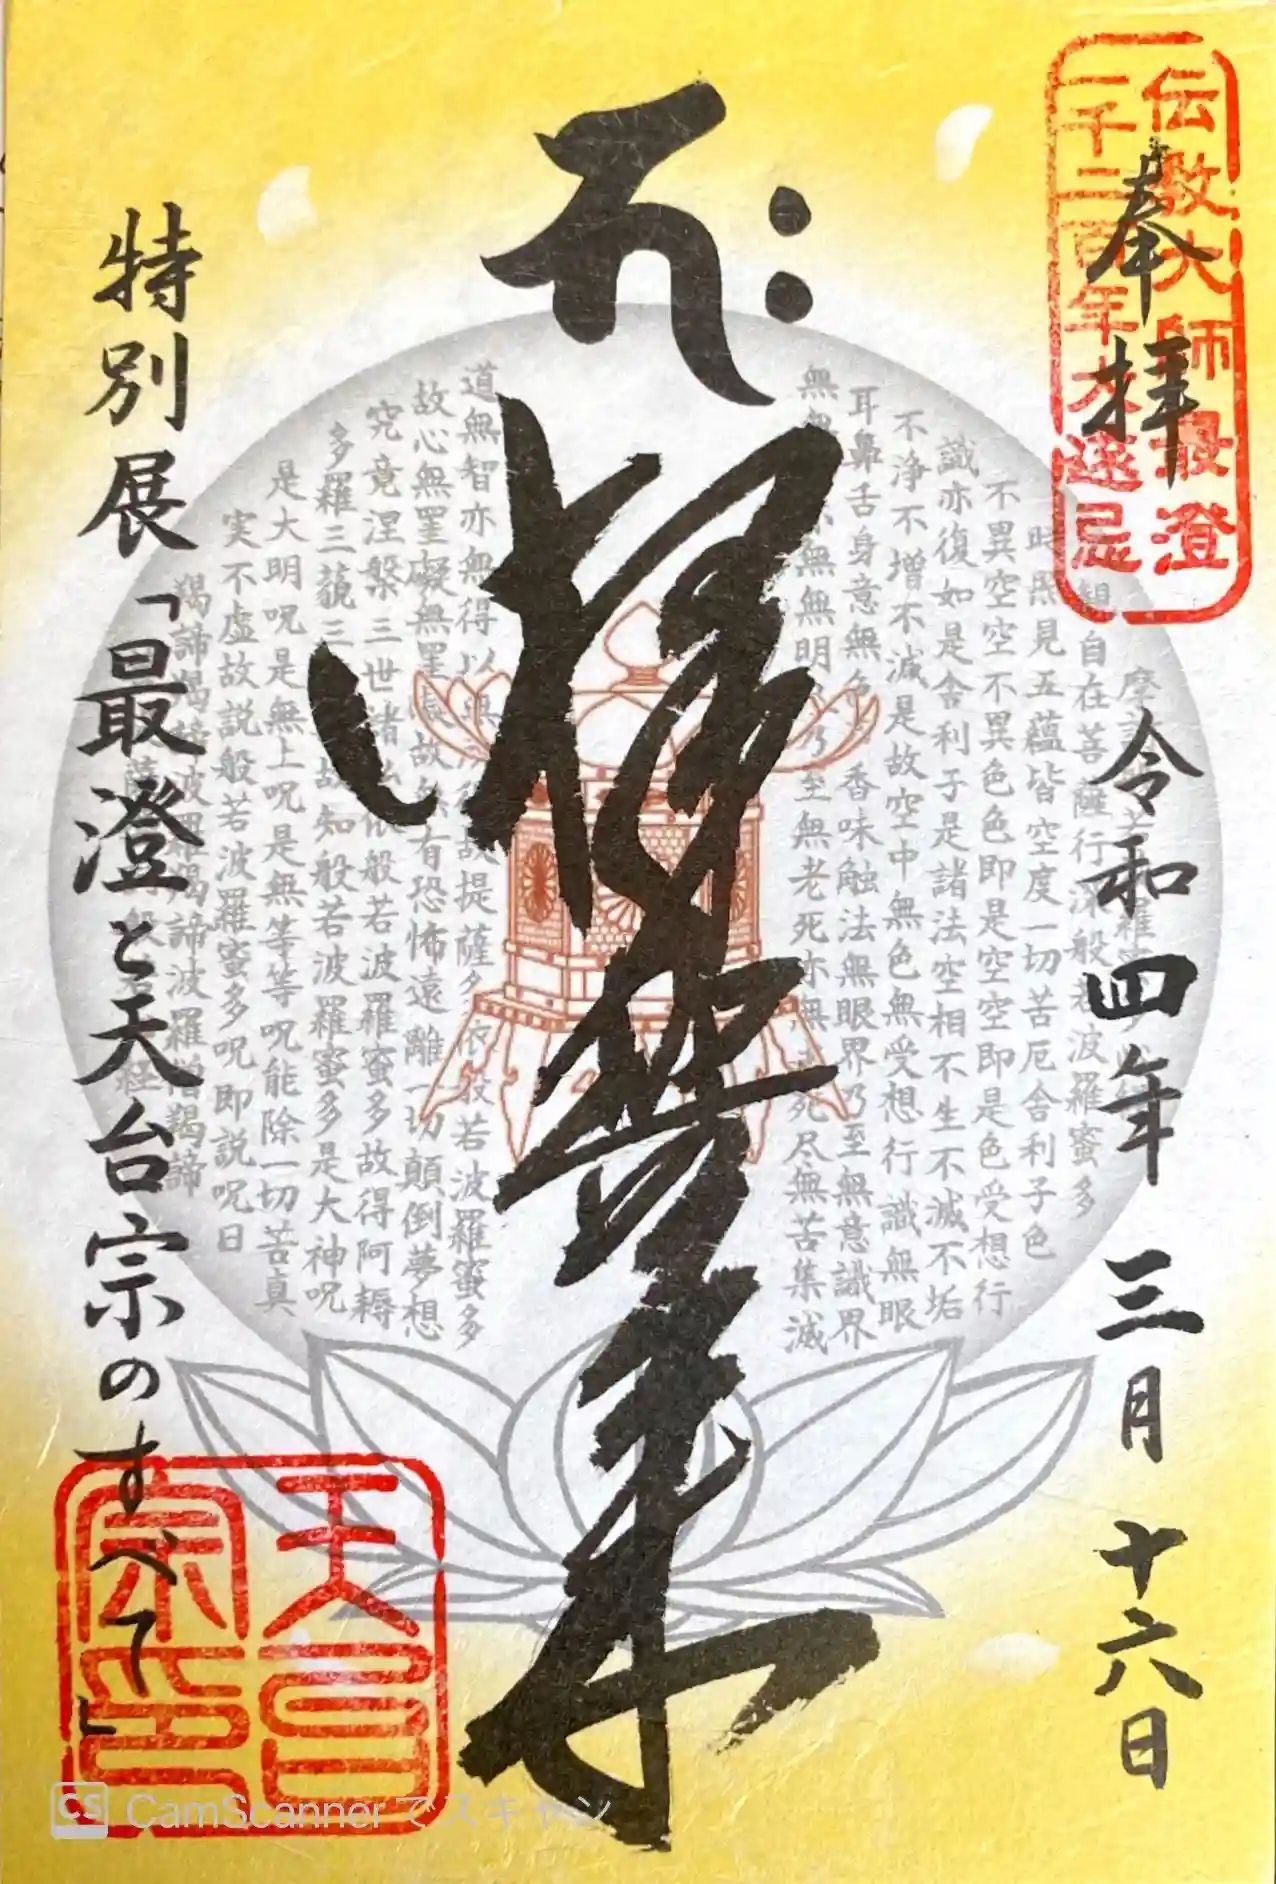 伝教大師最澄
一千二百年大遠忌
奉拝
令和四年 三月 十六日
自在菩薩行深般若波羅蜜多
時照見五蘊皆空度一切苦厄舎利子色
不異空空不異色色即是空空即是色受想行
識亦復如是舎利子是諸法空相不生不滅不垢
不浄不増不減是故空中無色無受想行識無眼
耳鼻舌身意無色 香味触法無眼界乃至無意識界
無無 無無明 乃至無老死亦無 死尽無苦集滅
道無智亦無得以無 故提薩 依般若波羅蜜多
故心無罣礙無罣礙故 有恐怖遠離一切顛倒夢想
究竟涅槃三世諸 依般若波羅蜜多故得阿耨
多羅三藐三 故知般若波羅蜜多是大神呪
是大明呪是無上呪是無等等呪能除一切苦真
実不虚故説般若波羅蜜多呪即説呪曰
羯諦羯諦波羅羯諦波羅僧羯諦
特別展「最澄と天台宗のすべて」
天台宗印
CS CamScanner でスキャン